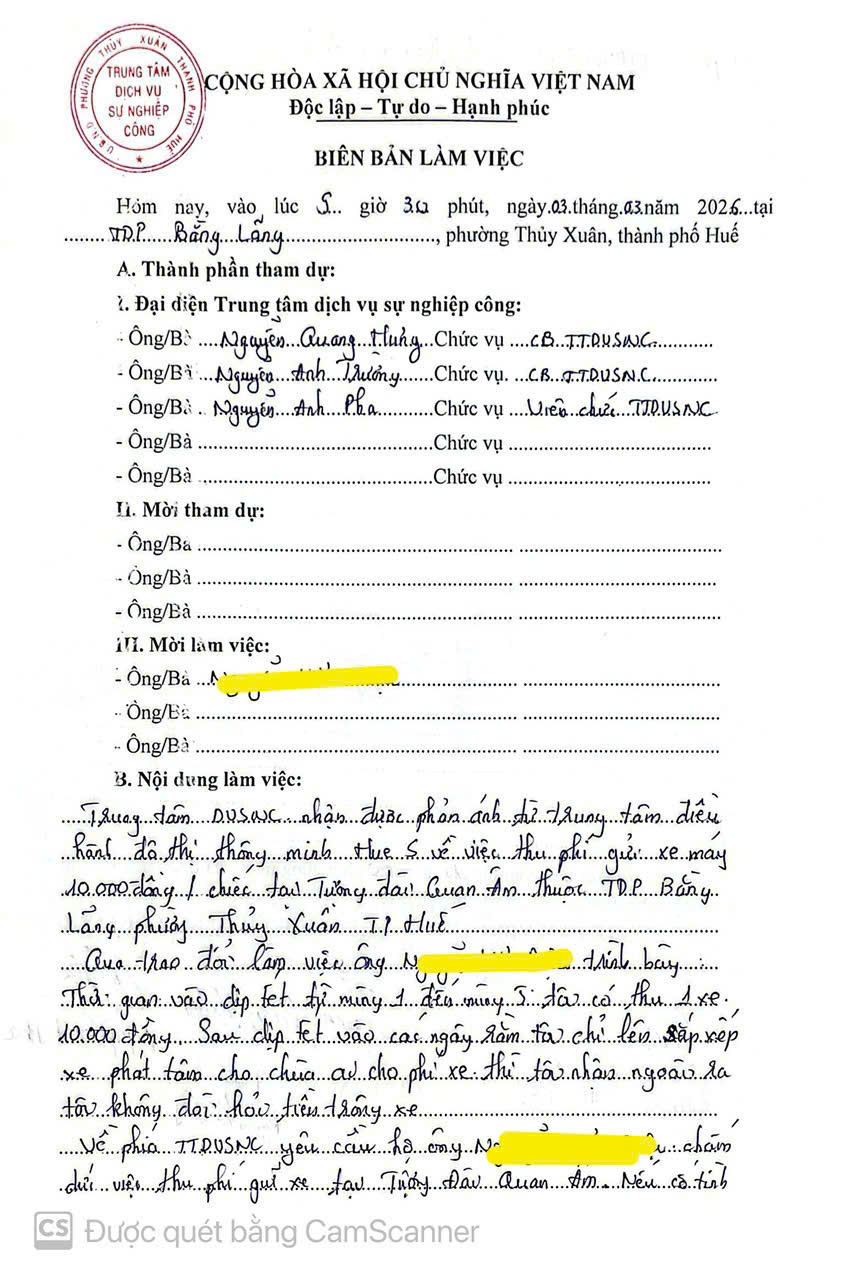 U.B.N.D PHƯỜNG THỦY XUÂN THÀNH PHỐ HUẾ
TRUNG TÂM
DỊCH VỤ
SỰ NGHIỆP
CÔNG
CỘNG HÒA XÃ HỘI CHỦ NGHĨA VIỆT NAM
Độc lập – Tự do – Hạnh phúc
BIÊN BẢN LÀM VIỆC
Hôm nay, vào lúc giờ 30 phút, ngày 03 tháng 03 năm 2026 tại
TDP Bằng Lãng, phường Thủy Xuân, thành phố Huế
A. Thành phần tham dự:
I. Đại diện Trung tâm dịch vụ sự nghiệp công:
- Ông/Bà Nguyễn Quang Hưng Chức vụ CB TTDVSNC
- Ông/Bà Nguyễn Anh Trường Chức vụ CB TTDVSNC
- Ông/Bà Nguyễn Anh Pha Chức vụ Viên chức TTDVSNC
- Ông/Bà Chức vụ
- Ông/Bà Chức vụ
II. Mời tham dự:
- Ông/Bà
- Ông/Bà
- Ông/Bà
III. Mời làm việc:
- Ông/Bà
- Ông/Bà
- Ông/Bà
B. Nội dung làm việc:
Trung tâm DVSNC nhận được phản ánh từ trung tâm điều
hành đô thị thông minh Hue S về việc thu phí gửi xe máy
10.000 đồng / chiếc tại Tượng đài Quan Âm thuộc TDP Bằng
Lãng phường Thủy Xuân T.P Huế
Qua trao đổi làm việc ông trình bày :
Thời gian vào dịp tết từ mùng 1 đến mùng 5 tôi có thu 1 xe
10.000 đồng. Sau dịp tết vào các ngày rằm tôi chỉ lên sắp xếp
xe phát tâm cho chùa ai cho phí xe thì tôi nhận ngoài ra
tôi không đòi hỏi tiền trông xe
Về phía TTDVSNC yêu cầu hộ ông chấm
dứt việc thu phí gửi xe tại Tượng Đài Quan Âm. Nếu cố tình
CS Được quét bằng CamScanner